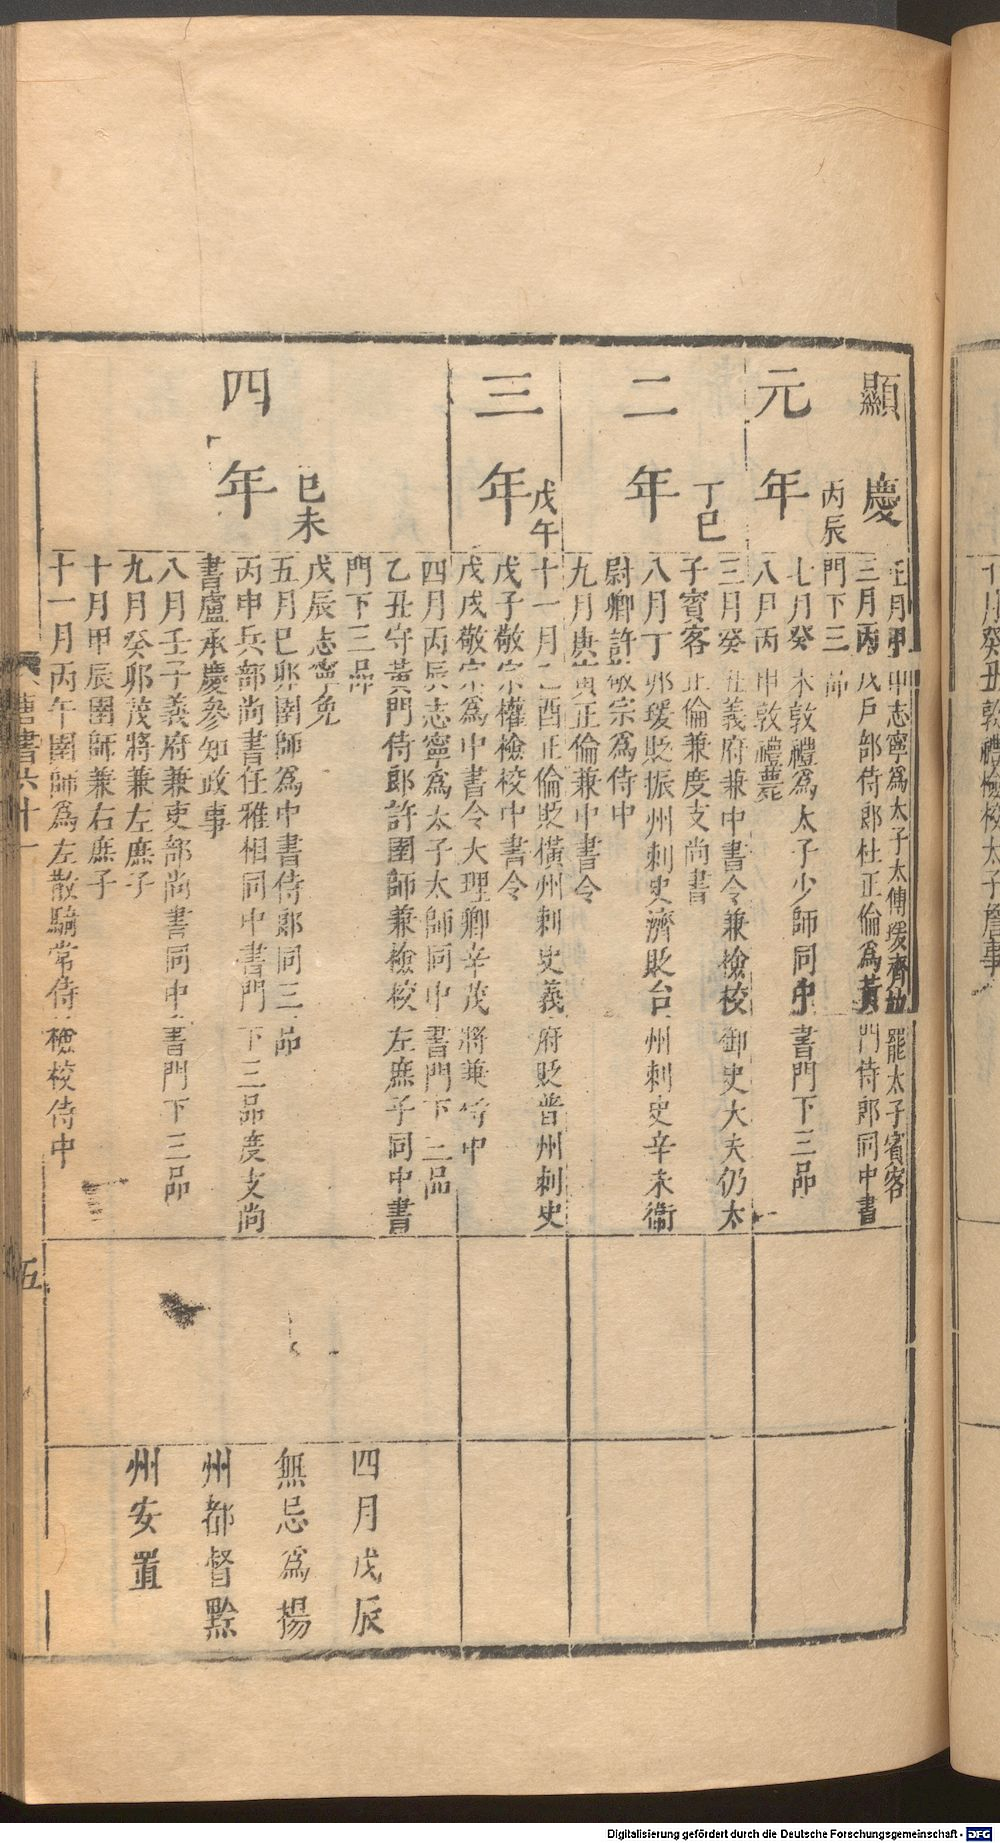 顯慶
元年
丙辰
正月甲申志寧爲太子太傅瑗濟並罷太子賓客
三月丙戌戶部侍郎杜正倫爲黃門侍郎同中書
門下三品
七月癸未敦禮爲太子少師同中書門下三品
八月丙申敦禮薨
二年
丁巳
三月癸丑義府兼中書令兼檢校御史大夫仍太
子賓客正倫兼度支尚書
八月丁卯瑗貶振州刺史濟貶台州刺史辛未衛
尉卿許敬宗爲侍中
九月庚寅正倫兼中書令
三年
戊午
十一月乙酉正倫貶橫州刺史義府貶普州刺史
戊子敬宗權檢校中書令
戊戌敬宗爲中書令大理卿辛茂將兼侍中
四年
已未
四月丙辰志寧爲太子太師同中書門下三品
乙丑守黃門侍郎許圉師兼檢校左庶子同中書
門下三品
戊辰志寧免
五月已卯圉師爲中書侍郎同三品
丙申兵部尚書任雅相同中書門下三品度支尚
書盧承慶參知政事
八月壬子義府兼吏部尚書同中書門下三品
九月癸卯茂將兼左庶子
十月甲辰圉師兼右庶子
十一月丙午圉師爲左散騎常侍檢校侍中
四月戊辰
無忌爲揚
州都督黔
州安置
唐書六十一
五
十月癸丑敦禮檢校太子詹事
Digitalisierung gefördert durch die Deutsche Forschungsgemeinschaft - DFG